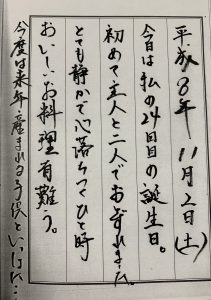 平成8年 11月2日(土)
今日は私の24回目の誕生日。
初めて主人と二人でおとずれました。
とても静かで心落ちつくひと時
おいしいお料理有難う。
今度は来年産まれる子供といっしょに…